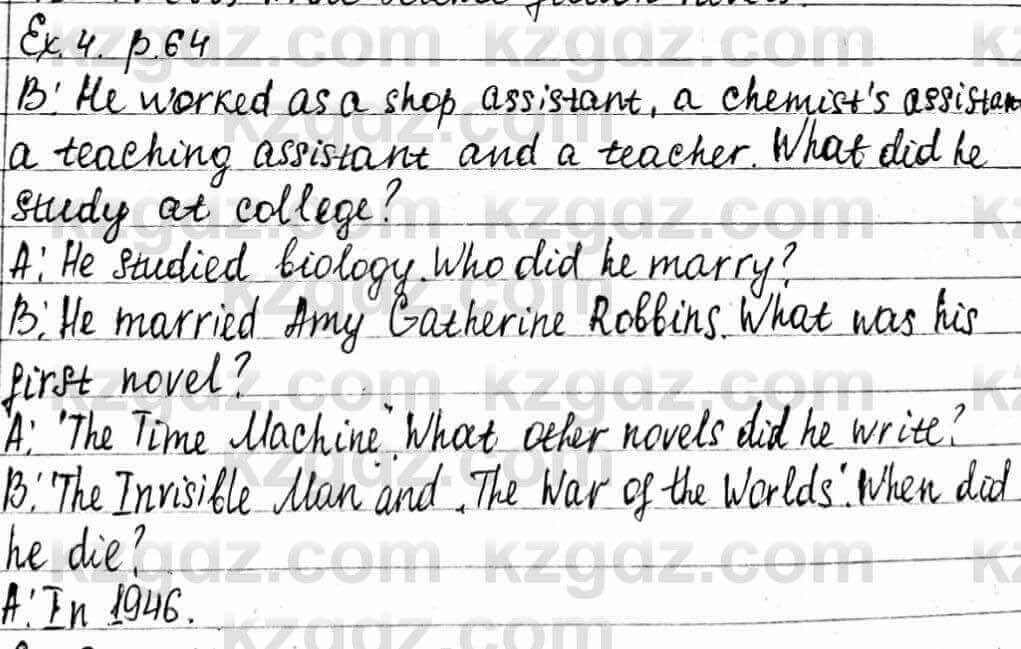 Ex. 4. p. 64
B: He worked as a shop assistant, a chemist's assistan
a teaching assistant and a teacher. What did he
study at college?
A: He studied biology. Who did he marry?
B: He married Amy Catherine Robbins. What was his
first novel?
A: "The Time Machine". What other novels did he write?
B: "The Invisible Man" and "The War of the Worlds". When did
he die?
A: In 1946.
kzgdz.com